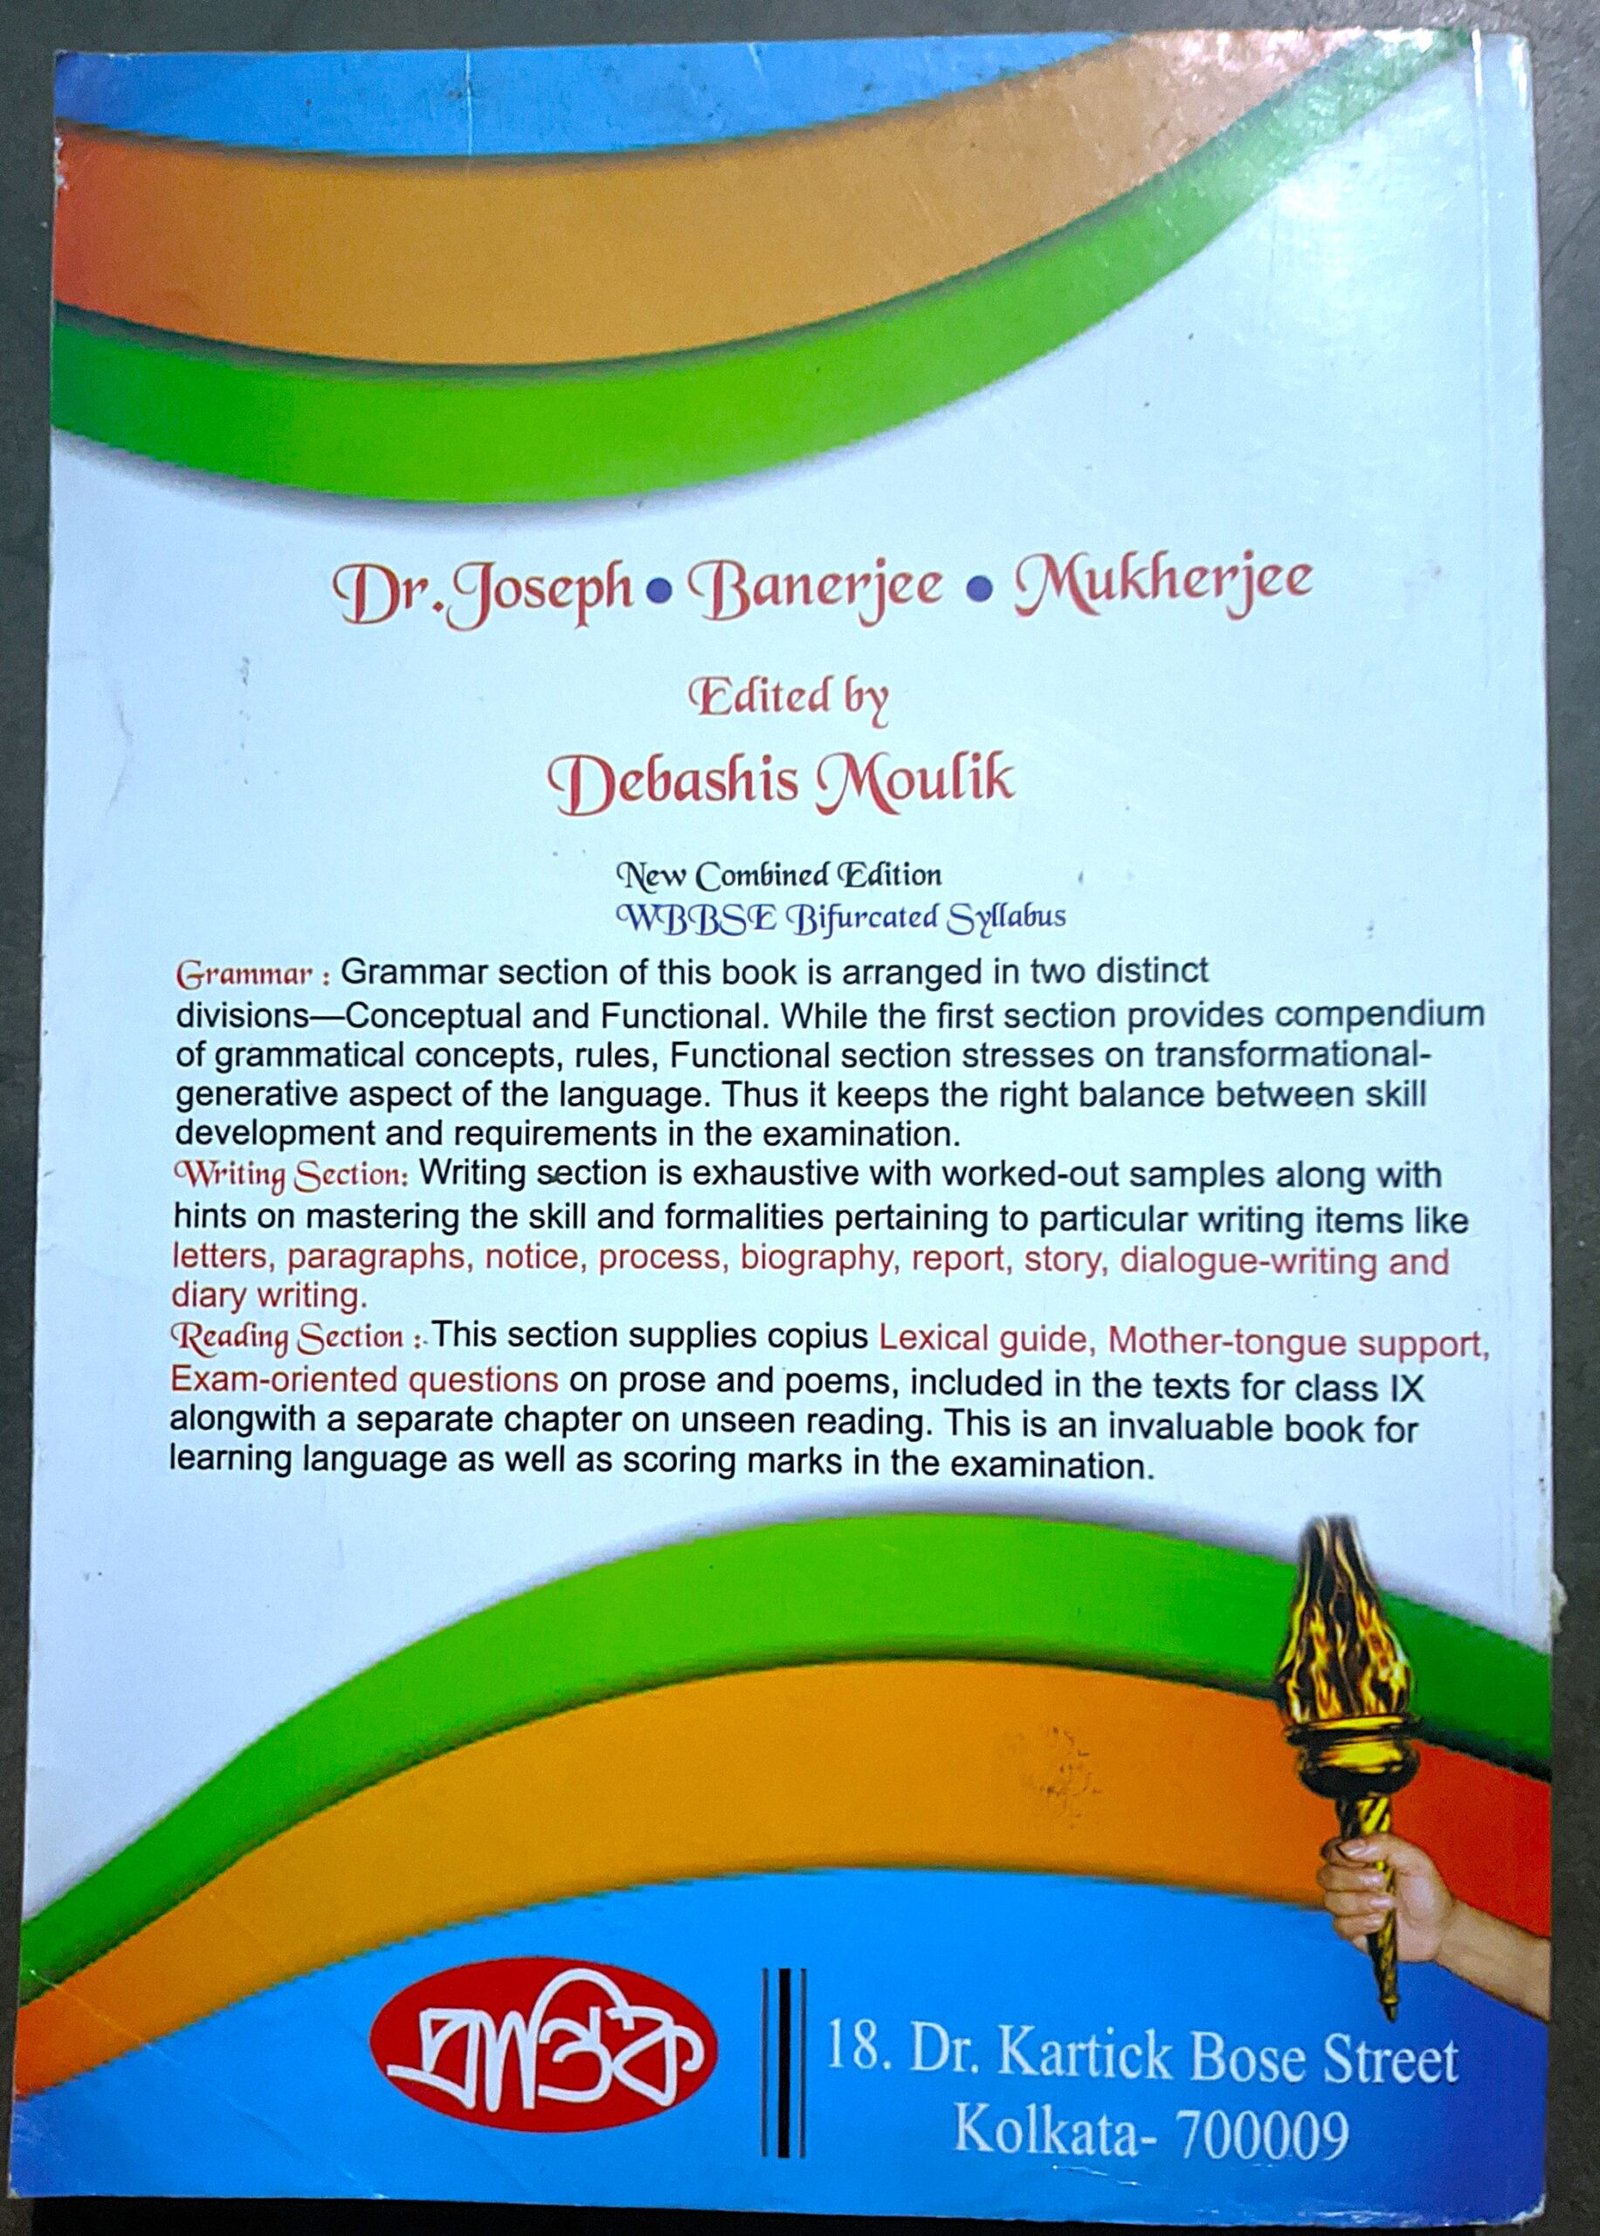 Dr. Joseph • Banerjee • Mukherjee
Edited by
Debashis Moulik
New Combined Edition
WBBSE Bifurcated Syllabus
Grammar : Grammar section of this book is arranged in two distinct
divisions—Conceptual and Functional. While the first section provides compendium
of grammatical concepts, rules, Functional section stresses on transformational-
generative aspect of the language. Thus it keeps the right balance between skill
development and requirements in the examination.
Writing Section: Writing section is exhaustive with worked-out samples along with
hints on mastering the skill and formalities pertaining to particular writing items like
letters, paragraphs, notice, process, biography, report, story, dialogue-writing and
diary writing.
Reading Section :- This section supplies copius Lexical guide, Mother-tongue support,
Exam-oriented questions on prose and poems, included in the texts for class IX
alongwith a separate chapter on unseen reading. This is an invaluable book for
learning language as well as scoring marks in the examination.
প্রান্তিক
18. Dr. Kartick Bose Street
Kolkata- 700009